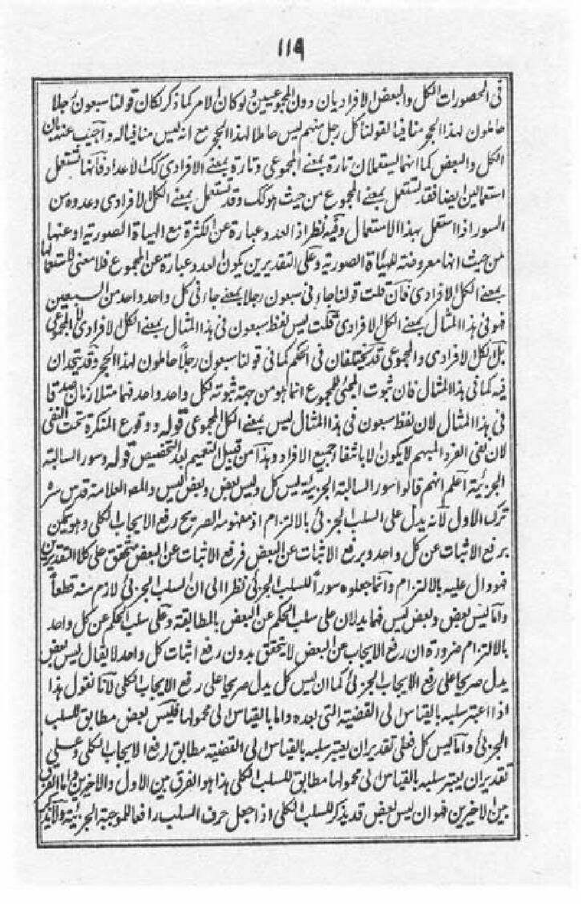 ١١٩
فى المحصورات الكل والبعض الافراديان دون المجموعيين ولو كان الامر كما ذكر لكان قولنا سبعون رجلا
حاملون لهذا الحجر منافيا لقولنا كل رجل منهم ليس حاملا لهذا الحجر مع انه ليس منافيا له واجيب عنه بان
الكل والبعض كما انهما يستعملان تارة بمعنى المجموعى وتارة بمعنى الافرادى كك الاعداد فانها تستعمل
استعمالين ايضا فقد تستعمل بمعنى المجموع من حيث هو كك وقد تستعمل بمعنى الكل الافرادى وعدوه من
السور اذا استعمل بهذا الاستعمال وفيه نظر اذ العدد عبارة عن الكثرة مع الهيأة الصورية او عنها
من حيث انها معروضة للهيأة الصورية وعلى التقديرين يكون العدد عبارة عن المجموع فلا معنى لاستعمالها
بمعنى الكل الافرادى فان قلت قولنا جاءنى سبعون رجلا بمعنى جاءنى كل واحد واحد من السبعين
فهو فى هذا المثال بمعنى الكل الافرادى قلت ليس لفظ سبعون فى هذا المثال بمعنى الكل الافرادى بل المجموعى
بل الكل الافرادى والمجموعى قد يختلفان فى الحكم كما فى قولنا سبعون رجلا حاملون لهذا الحجر وقد يتحدان
فيه كما فى هذا المثال فان ثبوت المجئ للمجموع انما هو من جهة ثبوته لكل واحد واحد فهما متلازمان صدقا
فى هذا المثال لان لفظ سبعون فى هذا المثال ليس بمعنى الكل المجموعى قوله ووقوع النكرة تحت النفى
لان نفى الفرد المبهم لا يكون الا بانتفاء جميع الافراد وهذا من قبيل التعميم بعد التخصيص قوله وسور السالبة
الجزئية اعلم انهم قالوا سور السالبة الجزئية ليس كل وليس بعض وبعض ليس والمص العلامة قدس سره
ترك الاول لانه يدل على السلب الجزئى بالالتزام اذ مفهومه الصريح رفع الايجاب الكلى وهو يمكن
برفع الاثبات عن كل واحد وبرفع الاثبات عن البعض فرفع الاثبات عن البعض متحقق على كلا التقديرين
فهو دال عليه بالالتزام وانما جعلوه سورا للسلب الجزئى نظرا الى ان السلب الجزئى لازم منه قطعا
واما ليس بعض وبعض ليس فهما يدلان على سلب الحكم عن البعض بالمطابقة وعلى سلب الحكم عن كل واحد
بالالتزام ضرورة ان رفع الايجاب عن البعض لا يتحقق بدون رفع اثبات كل واحد لا يقال ليس بعض
يدل صريحا على رفع الايجاب الجزئى كما ان ليس كل يدل صريحا على رفع الايجاب الكلى لانا نقول هذا
اذا اعتبر سلبه بالقياس الى القضية التى بعده واما بالقياس الى محمولها فليس بعض مطابق للسلب
الجزئى واما ليس كل فعلى تقدير ان يعتبر سلبه بالقياس الى القضية مطابق لرفع الايجاب الكلى وعلى
تقدير ان يعتبر سلبه بالقياس الى محمولها مطابق للسلب الكلى هذا هو الفرق بين الاول والاخيرين واما الفرق
بين الاخيرين فهو ان ليس بعض قد يذكر للسلب الكلى اذا جعل حرف السلب رافعا للموجبة الجزئية ولا يذكر